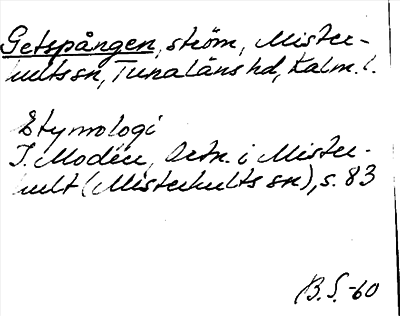 Getspången, ström, Mister-
hults sn, Tunaläns hd, Kalm. l.
Etymologi
I. Modéer, Ortn. i Mister-
hult (Misterhults sn), s. 83
B.S.-60